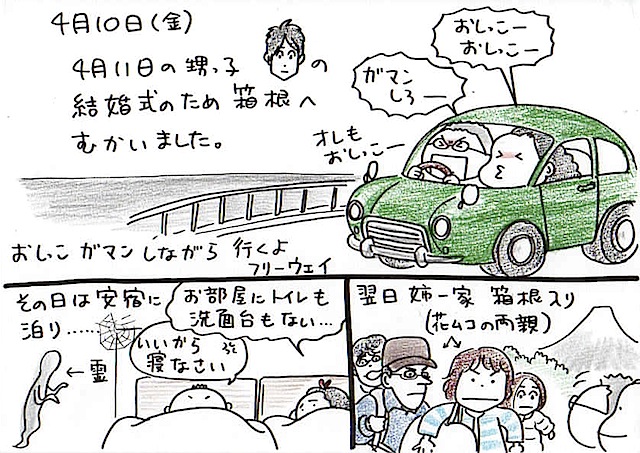 4月10日(金)
4月11日の甥っ子の
結婚式のため箱根へ
むかいました。
おしっこー
おしっこー
ガマン
しろー
オレも
おしっこー
おしっこガマンしながら行くよ
フリーウェイ
その日は安宿に
泊り……
お部屋にトイレも
洗面台もない…
いいから
寝なさい
←霊
翌日姉一家箱根入り
(花ムコの両親)